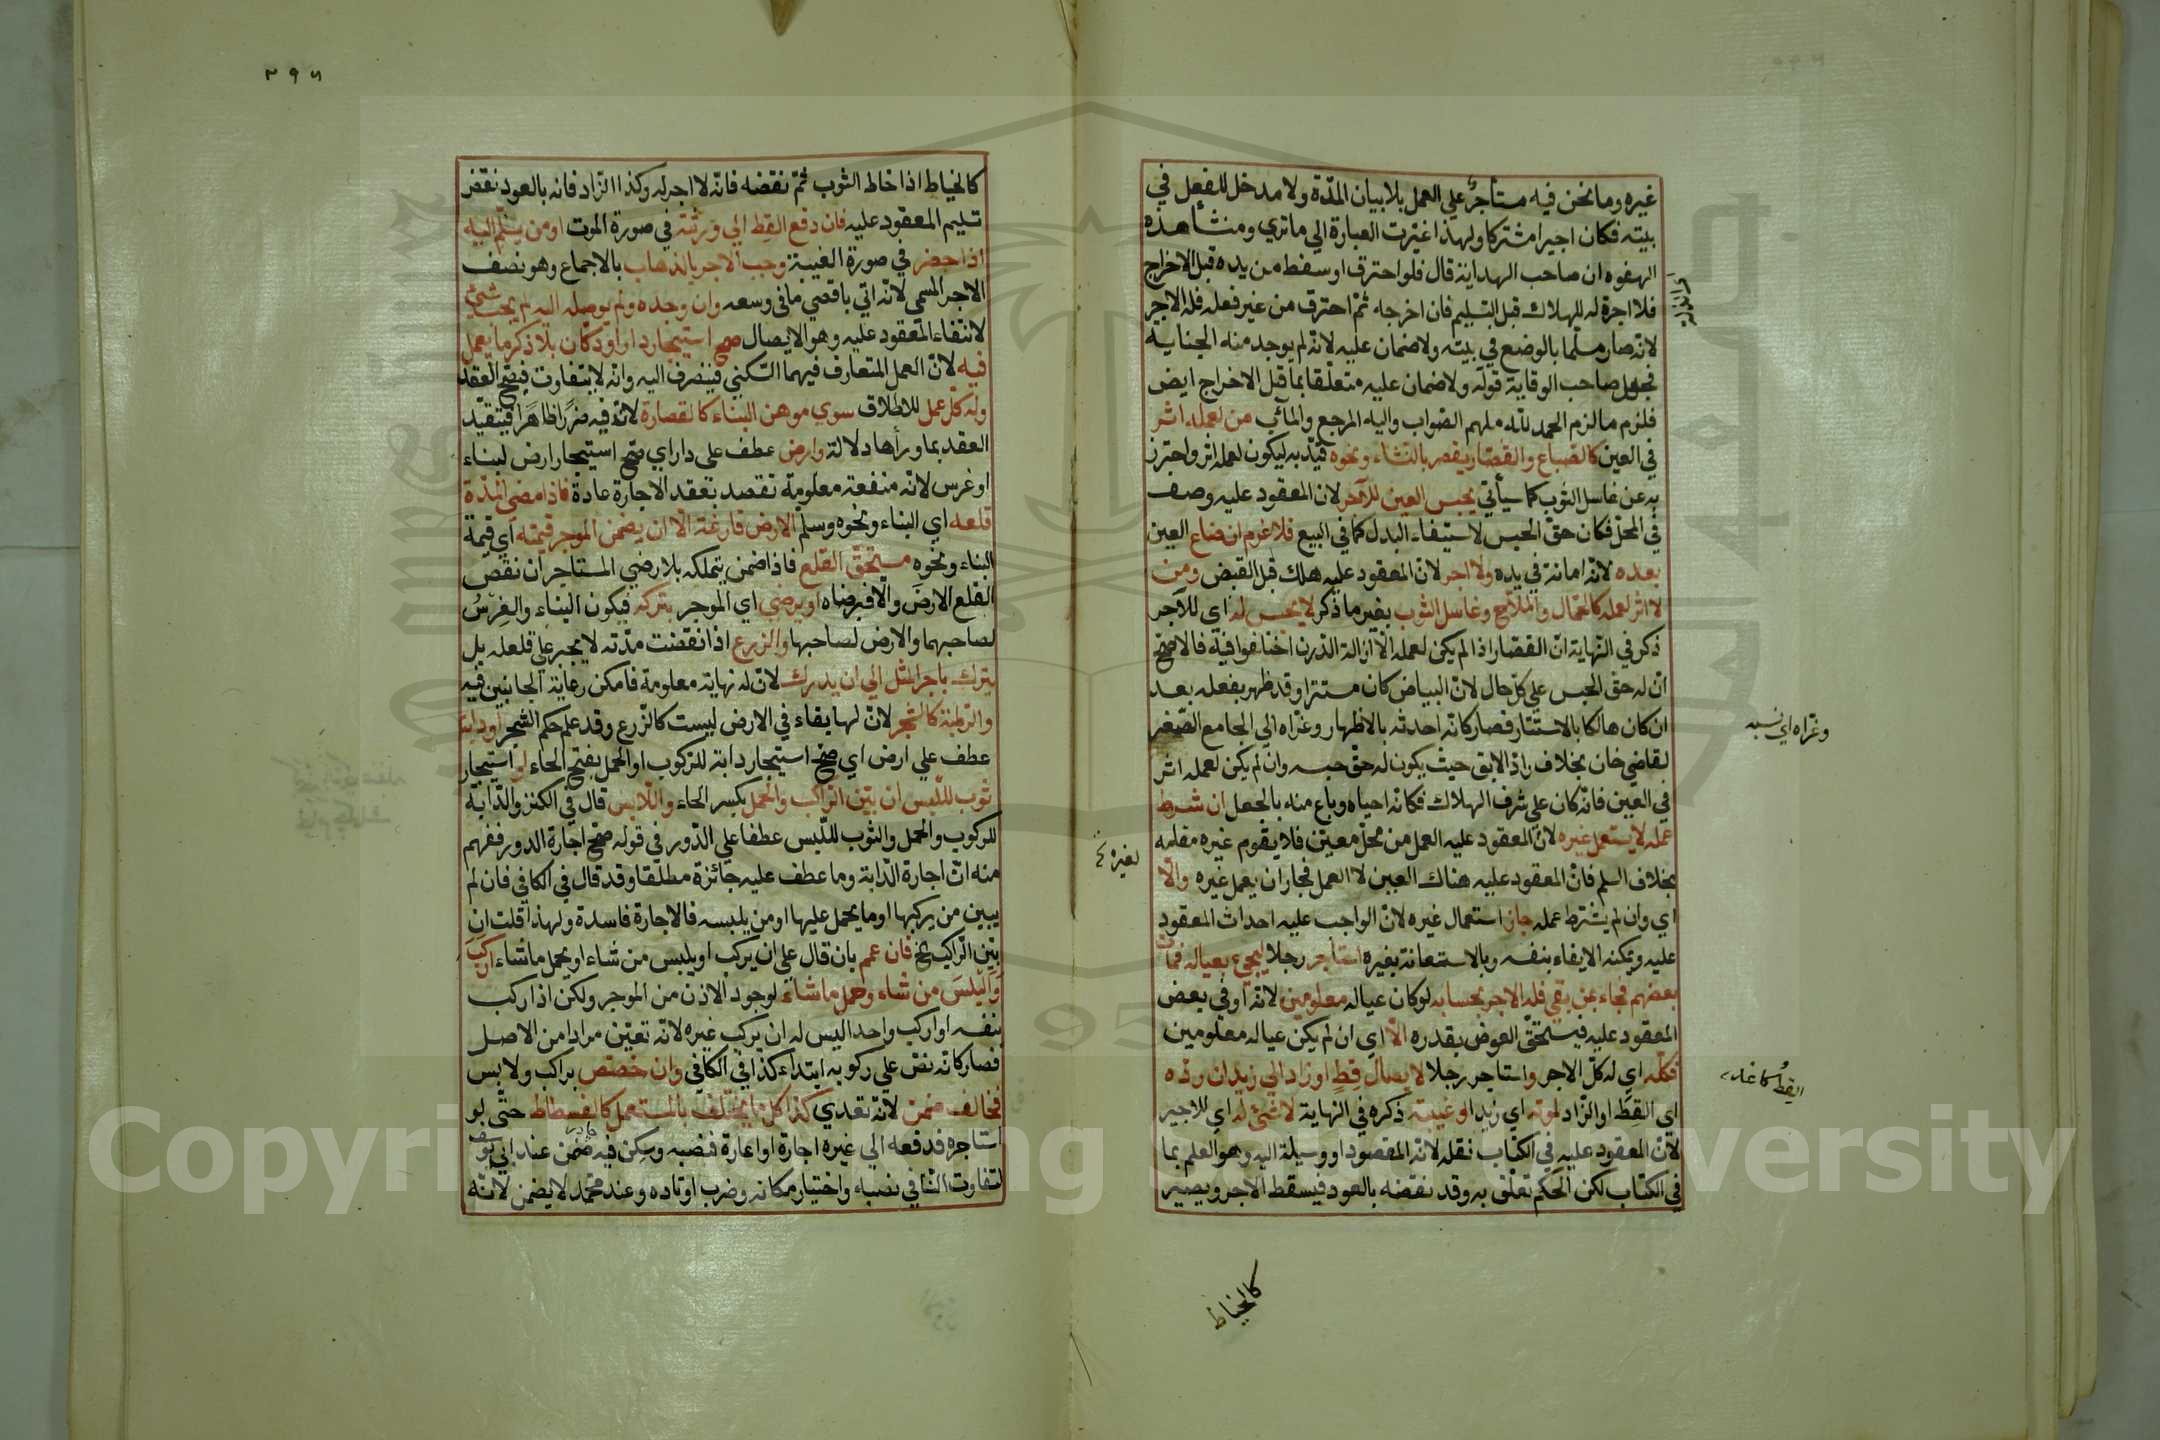 غيره وما نحن فيه مستأجر علي العمل بلا بيان المدّة ولا مدخل للفعل في
بيته فكان اجيرا مشتركا ولهذا غيّرت العبارة الي ما تري ومنشأ هذه
الهفوه ان صاحب الهداية قال فلو احترق او سقط من يده قبل الاخراج
فلا اجرة له للهلاك قبل التسليم فان اخرجه ثمّ احترق من غير فعله فله الاجر
لانّه صار مسلّما بالوضع في بيته ولا ضمان عليه لانّه لم يوجد منه الجناية
فجعل صاحب الوقاية قوله ولا ضمان عليه متعلّقا بما قبل الاخراج ايض
فلزم ما لزم الحمد للّه ملهم الصّواب واليه المرجع والمآب من لعمله اثر
في العين كالصّباغ والقصّار يقصر بالنشاء ونحوه قيّد به ليكون لعمله اثر واحترز
به عن غاسل الثوب كما سيأتي يحبس العين للآجر لان المعقود عليه وصف
في المحلّ فكان حقّ الحبس لاستيفاء البدل كما في البيع فلا غرم ان ضاع العين
بعده لانّه امانة في يده ولا اجر لانّ المعقود عليه هلك قبل القبض ومن
لا اثر لعمله كالحمّال والملّاح وغاسل الثوب بغير ما ذكر لا يحبس له اي للآجر
ذكر في النّهاية انّ القصّار اذا لم يكن لعمله الّا ازالة الدّرن اختلفوا فيه فالاصحّ
انّ له حقّ الحبس علي كلّ حال لانّ البياض كان مستترا وقد ظهر بفعله بعد
ان كان هالكا بالاستتار فصار كانّه احدثه بالاظهار وعزاه الي الجامع الصّغير
لقاضي خان بخلاف رادّ الابق حيث يكون له حقّ حبسه وان لم يكن لعمله اثر
في العين فانّه كان علي شرف الهلاك فكانّه احياه وباع منه بالجعل ان شرط
عمله لا يستعمل غيره لانّ المعقود عليه العمل من محلّ معيّن فلا يقوم غيره مقامه
بخلاف السلم فانّ المعقود عليه هناك العين لا العمل فجاز ان يعمل غيره والّا
اي وان لم يشترط عمله جاز استعمال غيره لانّ الواجب عليه احداث المعقود
عليه ويمكنه الايفاء بنفسه وبالاستعانة بغيره استأجر رجلا ليجيء بعياله فمات
بعضهم فجاء بمن بقي فله الاجر بحسابه لو كان عياله معلومين لانّه اوفي بعض
المعقود عليه فيستحقّ العوض بقدره الّا اي ان لم يكن عياله معلومين
فكلّه اي له كلّ الاجر واستاجر رجلا لايصال قطّ او زاد الي زيد ان ردّه
اي القطّ او الزّاد لموته اي زيد او غيبته ذكره في النهاية لا شيء له اي للاجير
لانّ المعقود عليه في الكتاب نقله لانّه المقصود او وسيلة اليه وهو العلم بما
في الكتاب لكن الحكم تعلّق به وقد نقضه بالعود فيسقط الاجر ويصير
وعزاه اي نسبه
لغيره نخ
القطّ كاغد
كالخياط
٣٩٦
كالخياط اذا خاط الثوب ثمّ نقضه فانّه لا اجر له وكذا الزّاد فانه بالعود نقض
تسليم المعقود عليه فان دفع القط الي ورثته في صورة الموت او من يسلّم اليه
اذا حضر في صورة الغيبة وجب الاجر بالذهاب بالاجماع وهو نصف
الاجر المسمي لانّه اتي باقصي ما في وسعه وان وجده ولم يوصله اليه لم يجب شيء
لانتفاء المعقود عليه وهو الايصال صحّ استيجار دار او دكّان بلا ذكر ما يعمل
فيه لانّ العمل المتعارف فيهما السّكني فينصرف اليه وانّه لا يتفاوت فيصحّ العقد
وله كلّ عمل للاطلاق سوي موهن البناء كالقصارة لانّه فيه ضررًا ظاهرًا فيتقيّد
العقد بما ورآها دلالة وارض عطف علي دار اي صحّ استيجار ارض لبناء
او غرس لانّه منفعة معلومة تقصد بعقد الاجارة عادة فاذا مضي المدّة
قلعه اي البناء ونحوه وسلم الارض فارغة الّا ان يضمن الموجر قيمته اي قيمة
البناء ونحوه مستحقّ القلع فاذا ضمن يتملكه بلا رضي المستاجر ان نقص
القلع الارض والّا فبرضاه او يرضي اي الموجر بتركه فيكون البناء والغرس
لصاحبهما والارض لصاحبها والزرع اذا انقضت مدّته لا يجبر علي قلعه بل
يترك باجر المثل الي ان يدرك لانّ له نهاية معلومة فامكن رعاية الجانبين فيه
والرّطبة كالشجر لانّ لها بقاء في الارض ليست كالزّرع وقد علم حكم الشجر او دابة
عطف علي ارض اي صحّ استيجار دابة للركوب او الحمل بفتح الحاء او استيجار
ثوب للّبس ان بيّن الرّاكب والحمل بكسر الحاء واللّابس قال في الكنز والدّابة
للركوب والحمل والثوب للّبس عطفا علي الدّور في قوله صحّ اجارة الدور ففهم
منه انّ اجارة الدّابة وما عطف عليه جائزة مطلقا وقد قال في الكافي فان لم
يبين من يركبها او ما يحمل عليها او من يلبسه فالاجارة فاسدة ولهذا قلت ان
بيّن الرّاكب الخ فان عمم بان قال علي ان يركب او يلبس من شاء او يحمل ما شاء اركب
والبس من شاء وحمل ما شاء لوجود الاذن من الموجر ولكن اذا ركب
بنفسه او اركب واحدا ليس له ان يركب غيره لانّه تعيّن مرادا من الاصل
فصار كانّه نصّ علي ركوبه ابتداء كذا في الكافي وان خصّص براكب ولابس
فخالف ضمن لانّه تعدي كذا كلّ ما يختلف بالمستعمل كالفسطاط حتّي لو
استاجره فدفعه الي غيره اجارة او اعارة فنصبه وسكن فيه ضمن عند ابي يوسف
لتفاوت النّاس في نصبه واختيار مكانه وضرب اوتاده وعند محمّد لا يضمن لانّه